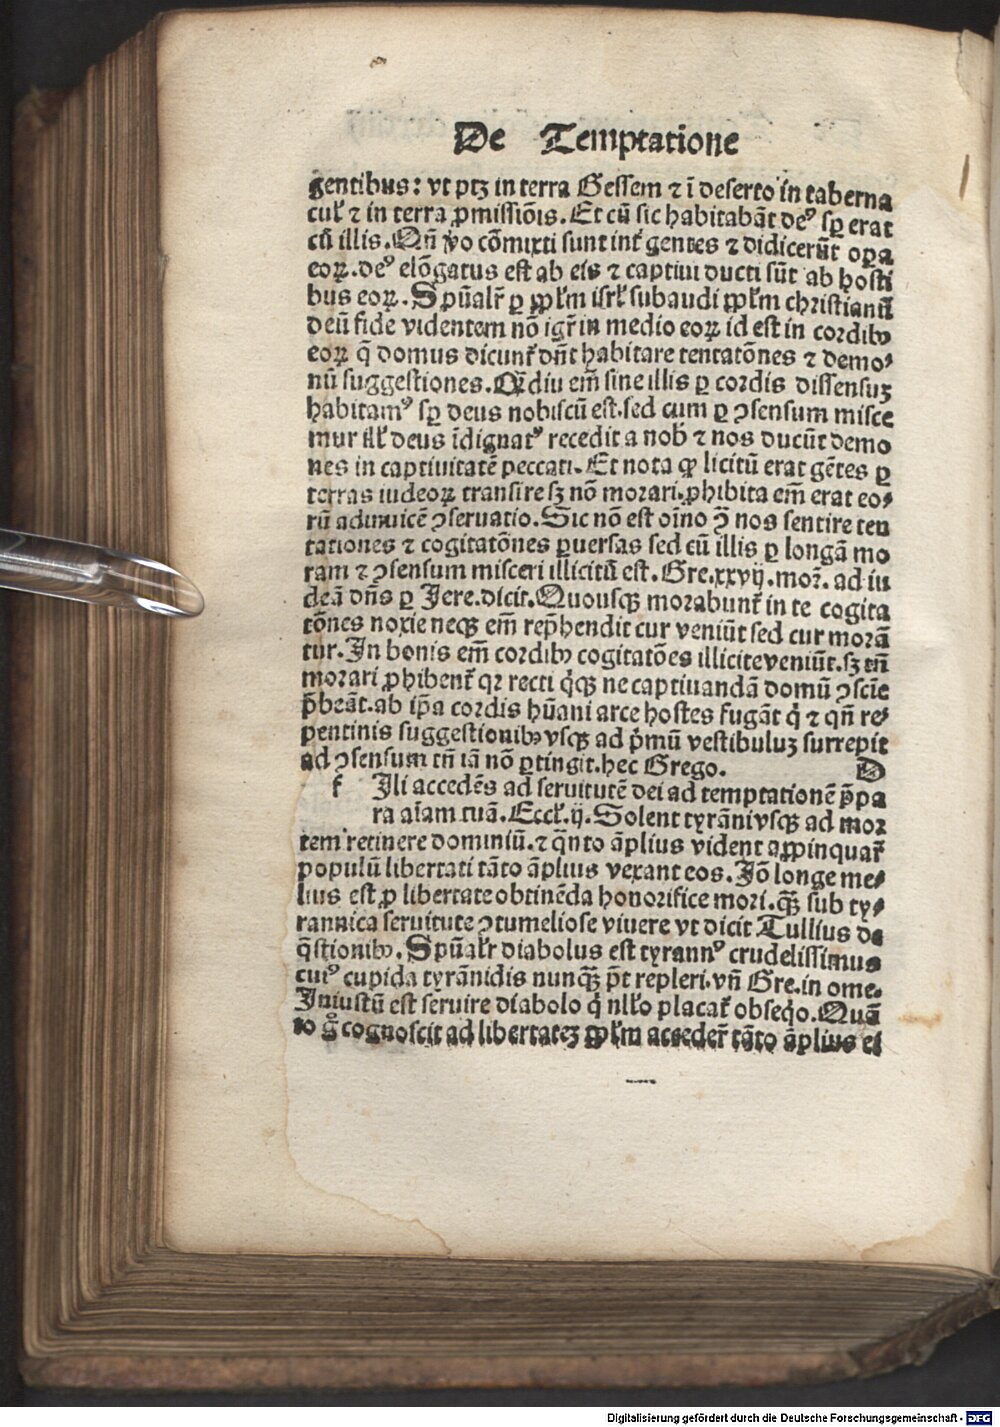 De Temptatione
gentibus: vt ptꝫ in terra Gessem ⁊ ī deserto in taberna
cul' ⁊ in terra ꝓmissiōis. Et cū sic habitabāt deꝰ sꝑ erat
cū illis. Qn̄ vo cōmixti sunt int̄ gentes ⁊ didicerūt oꝑa
eoꝝ. deꝰ elōgatus est ab eis ⁊ captiui ducti sūt ab hosti
bus eoꝝ. Spūalr̄ ꝑ ꝓpl'm isrl' subaudi ꝓpl'm christianū
deū fide videntem nō igr̄ in medio eoꝝ id est in cordibꝰ
eoꝝ q̄ domus dicunt̄ dn̄t habitare tentatōnes ⁊ demo⸗
nū suggestiones. Qȝdiu em̄ sine illis ꝑ cordis dissensuꝫ
habitamꝰ sꝑ deus nobiscū est. sed cum ꝑ ꝯsensum misce
mur ill' deus īdignatꝰ recedit a nob̄ ⁊ nos ducūt demo
nes in captiuitatē peccati. Et nota ꝙ licitū erat gētes ꝑ
terras iudeoꝝ transire sꝫ nō morari. ꝓhibita em̄ erat eo⸗
rū adinuicē ꝯseruatio. Sic nō est oīno ꝯ̄ nos sentire ten
tationes ⁊ cogitatōnes ꝑuersas sed cū illis ꝑ longā mo
ram ⁊ ꝯsensum misceri illicitū est. Gre. xxvij. mor̄. ad iu
deā dn̄s ꝑ Jere. dicit. Quousqꝫ morabunt̄ in te cogita
tōnes noxie neqꝫ em̄ rep̄hendit cur veniūt sed cur morā
tur. In bonis em̄ cordibꝰ cogitatōes illicite veniūt. sꝫ tn̄
morari ꝓhibent̄ qꝛ recti q̇qꝫ ne captiuandā domū ꝯscīe
p̄beāt. ab ip̄a cordis hūani arce hostes fugāt q̇ ⁊ qn̄ re⸗
pentinis suggestionibꝰ vsqꝫ ad p̄mū vestibuluꝫ surrepit
ad ꝯsensum tn̄ iā nō ꝑtingit. hec Grego. D
f Ili accedēs ad seruitutē dei ad temptationē p̄pa
ra aīam tuā. Eccl'. ij. Solent tyrāni vsqꝫ ad mor
tem retinere dominiū. ⁊ q̄nto āplius vident aꝓpinquar̄
populū libertati tāto āplius vexant eos. Jō longe me⸗
lius est ꝓ libertate obtinēda honorifice mori. qꝫ̄ sub ty⸗
rannica seruitute ꝯtumeliose viuere vt dicit Tullius de
q̄stionibꝰ. Spūalr̄ diabolus est tyrannꝰ crudelissimus
cuiꝰ cupida tyrānidis nunqꝫ̄ pt̄ repleri. vn̄ Gre. in ome.
Iniustū est seruire diabolo q̇ nll'o placat̄ obseqo. Quā
to g̊ cognoscit ad libertateꝫ ꝓpl'm acceder̄ tāto āplius ei
Digitalisierung gefördert durch die Deutsche Forschungsgemeinschaft - DFG